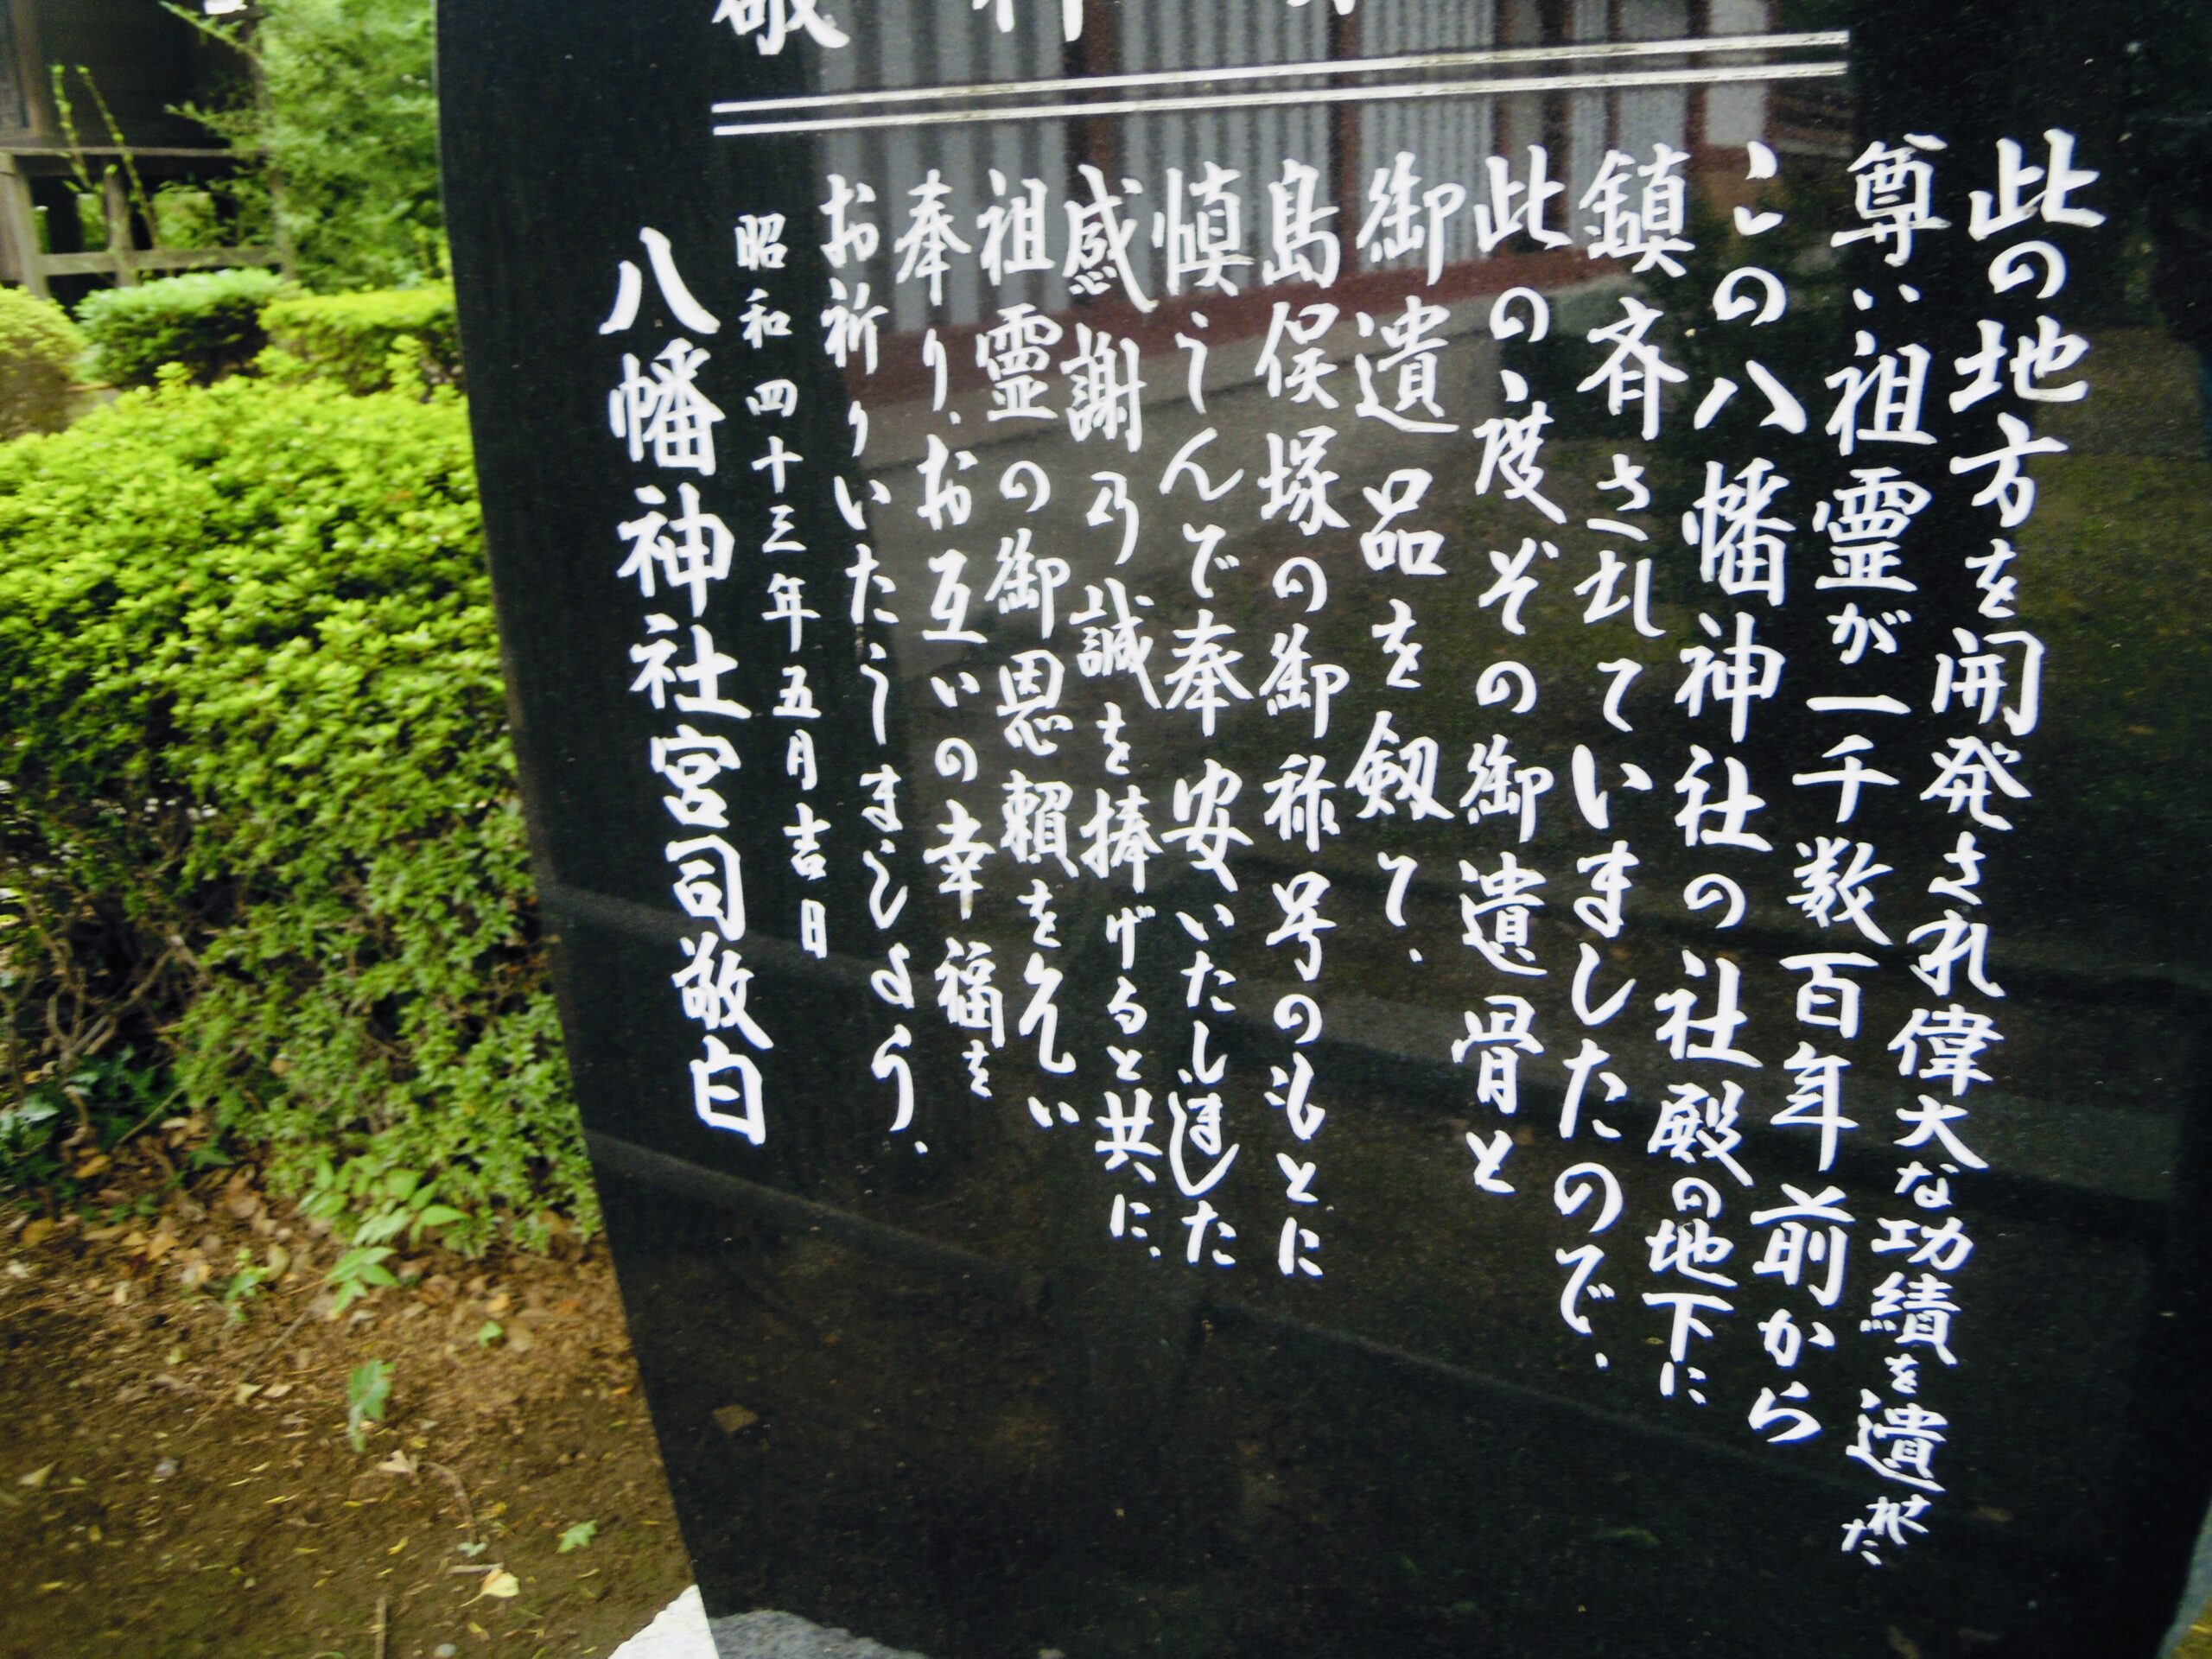 敬神
此の地方を開発され偉大な功績を遺された
尊い祖霊が一千数百年前から
この八幡神社の社殿の地下に
鎮斉されていましたので、
此の、度ぞの御遺骨と
御遺品を剱て、
島俣塚の御称号のもとに
慎しんで奉安いたしました
感謝乃誠を捧げると共に、
祖霊の御恩頼をこい
奉り、お互いの幸福を
お祈りいたうましょう、
昭和四十三年五月吉日
八幡神社宮司敬白